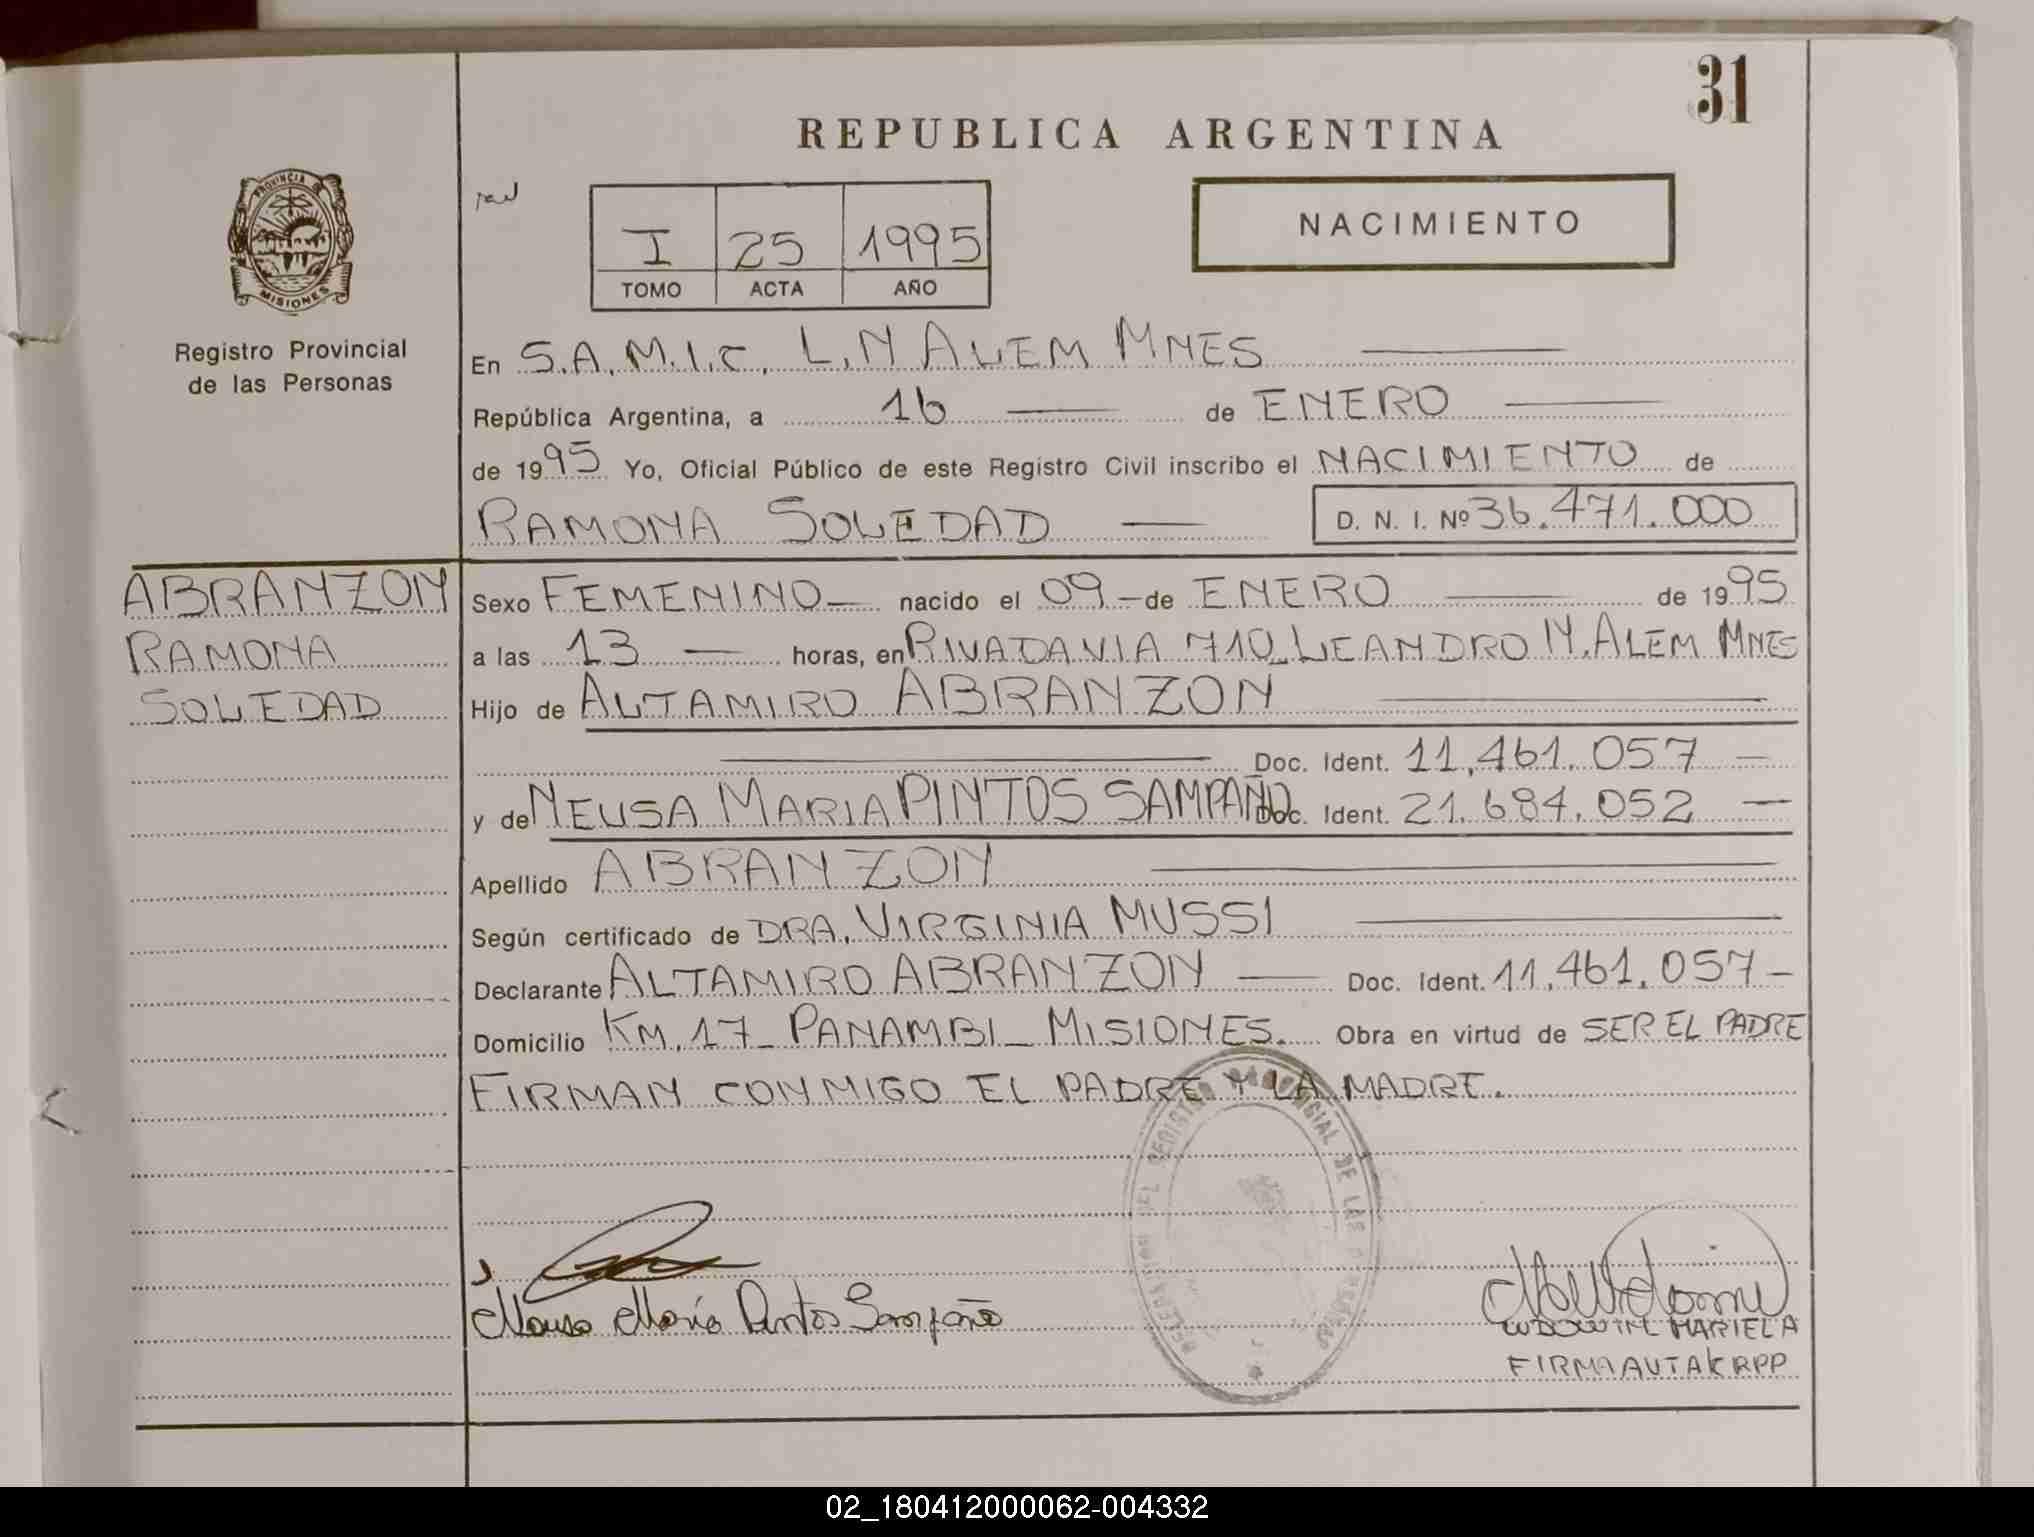 31
REPUBLICA ARGENTINA
PROVINCIA DE
MISIONES
Registro Provincial
de las Personas
I 25 1995
TOMO ACTA AÑO
NACIMIENTO
En S.A.M.I.C. L.N ALEM MNES
República Argentina, a 16 de ENERO
de 1995 Yo, Oficial Público de este Registro Civil inscribo el NACIMIENTO de
RAMONA SOLEDAD D. N. I. Nº 36.471.000
ABRANZON
RAMONA
SOLEDAD
Sexo FEMENINO nacido el 09 de ENERO de 1995
a las 13 horas, en RIVADAVIA 710 LEANDRO N. ALEM MNES
Hijo de ALTAMIRO ABRANZON
Doc. Ident. 11.461.057
y de NEUSA MARIA PINTOS SAMPAÑO Doc. Ident. 21.684.052
Apellido ABRANZON
Según certificado de DRA. VIRGINIA MUSSI
Declarante ALTAMIRO ABRANZON Doc. Ident. 11.461.057
Domicilio KM. 17 - PANAMBI - MISIONES. Obra en virtud de SER EL PADRE
FIRMAN CONMIGO EL PADRE Y LA MADRE.
DEL REGISTRO PROVINCIAL DE LAS PERSONAS
Neusa María Pintos Sampaño
MARIELA
02_180412000062-004332